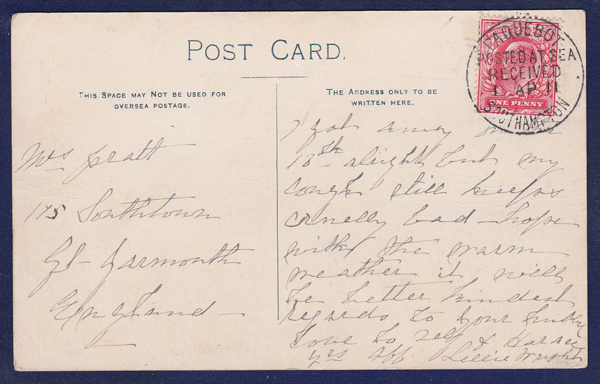 POST CARD.
THIS SPACE MAY NOT BE USED FOR
OVERSEA POSTAGE.
THE ADDRESS ONLY TO BE
WRITTEN HERE.
PAQUEBOT
POSTED AT SEA
RECEIVED
1 AP 11
SOUTHAMPTON
ONE PENNY
Mrs Pratt
115 Southtown
Gt Yarmouth
England
I got away on the
10th alright but my
cough still keeps
cruelly bad - hope
with the warm
weather it will
be better kindest
regards to your
love to self & Horace
yrs aff Lillie Wright